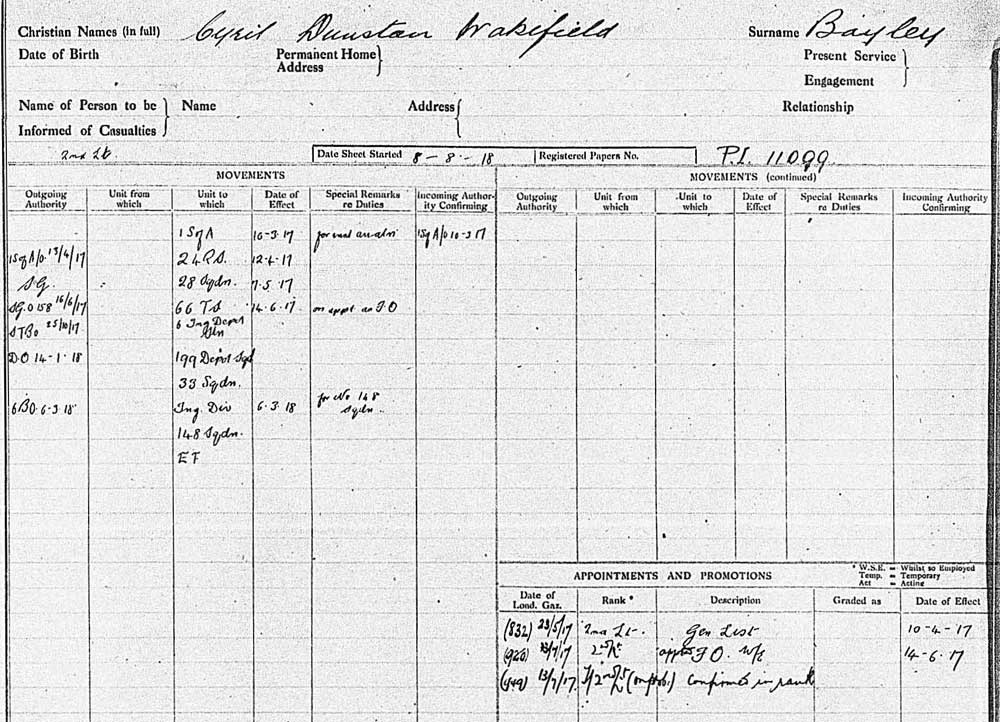 Christian Names (in full) Cyril Dunstan Wakefield Surname Bayley
Date of Birth Permanent Home Address Present Service
Engagement
Name of Person to be Informed of Casualties Name Address Relationship
2nd Lt. Date Sheet Started 8 - 8 - 18 Registered Papers No. P.I. 11099
MOVEMENTS MOVEMENTS (continued)
Outgoing Authority Unit from which Unit to which Date of Effect Special Remarks re Duties Incoming Authority Confirming Outgoing Authority Unit from which Unit to which Date of Effect Special Remarks re Duties Incoming Authority Confirming
1 Sq A 10-3-17 1 Sq A/O 10-3-17
1 Sq A/O 13/4/17 24 R.S. 12-4-17
SG. 28 Sqdn. 7.5.17
SG.O 158 16/6/17 66 TS 14.6.17 on appt as F.O
STBO 25/10/17 6 Trg Depot
DO 14-1-18 199 Depot Sqd
33 Sqdn.
6BO. 6-3.18 Trg. Div 6.3.18 for No 148 Sqdn.
148 Sqdn.
EF
APPOINTMENTS AND PROMOTIONS
* W.S.E. = Whilst so Employed
Temp. = Temporary
Act = Acting
Date of Lond. Gaz. Rank * Description Graded as Date of Effect
(832) 23/5/17 2nd Lt. Gen List 10-4-17
(920) 13/7/17 2nd Lt appt F.O. 14-6-17
13/7/17. T/2nd Lt (on prob.) confirmed in rank